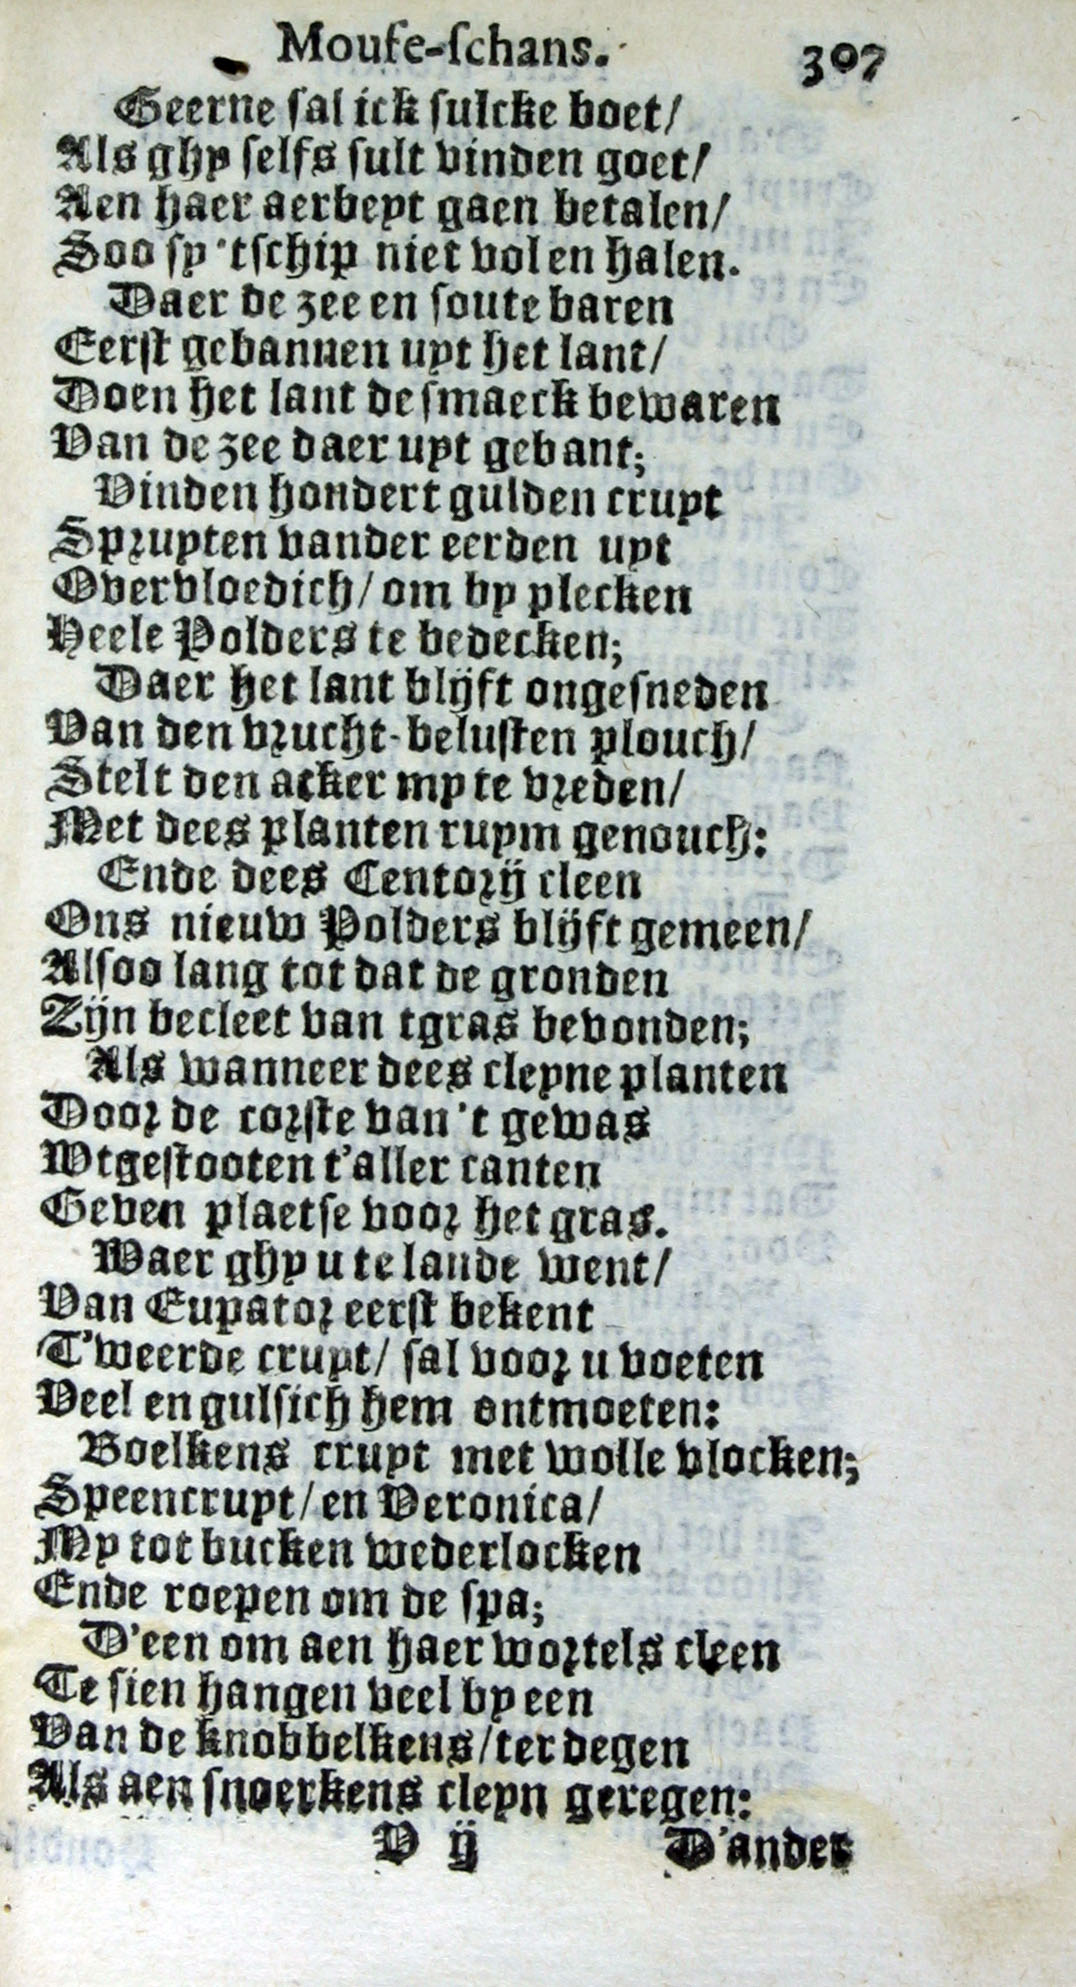 Mouſe-ſchans. 307
Geerne ſal ick ſulcke boet/
Als ghy ſelfs ſult vinden goet/
Aen haer aerbeyt gaen betalen/
Soo ſy 'tſchip niet vol en halen.
Daer de zee en ſoute baren
Eerſt gebannen uyt het lant/
Doen het lant de ſmaeck bewaren
Van de zee daer uyt gebant;
Vinden hondert gulden cruyt
Spruyten vander eerden uyt
Overvloedich/ om by plecken
Heele Polders te bedecken;
Daer het lant blijft ongeſneden
Van den vrucht-beluſten plouch/
Stelt den acker my te vreden/
Met dees planten ruym genouch:
Ende dees Centorij cleen
Ons nieuw Polders blijft gemeen/
Alſoo lang tot dat de gronden
Zijn becleet van tgras bevonden;
Als wanneer dees cleyne planten
Door de corſte van 't gewas
Wtgeſtooten t'aller canten
Geven plaetſe voor het gras.
Waer ghy u te lande went/
Van Eupator eerſt bekent
T'weerde cruyt/ ſal voor u voeten
Veel en gulſich hem ontmoeten:
Boelkens cruyt met wolle vlocken;
Speencruyt/ en Veronica/
My tot bucken wederlocken
Ende roepen om de ſpa;
D'een om aen haer wortels cleen
Te ſien hangen veel by een
Van de knobbelkens/ ter degen
Als aen ſnoerkens cleyn geregen:
V ij D'ander